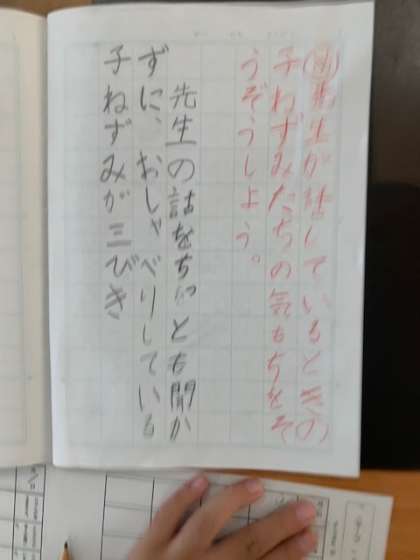 先生が話しているときの
子ねずみたちの気もちをそ
うぞうしよう。
先生の話をちっとも聞か
ずに、おしゃべりしている
子ねずみが三びき